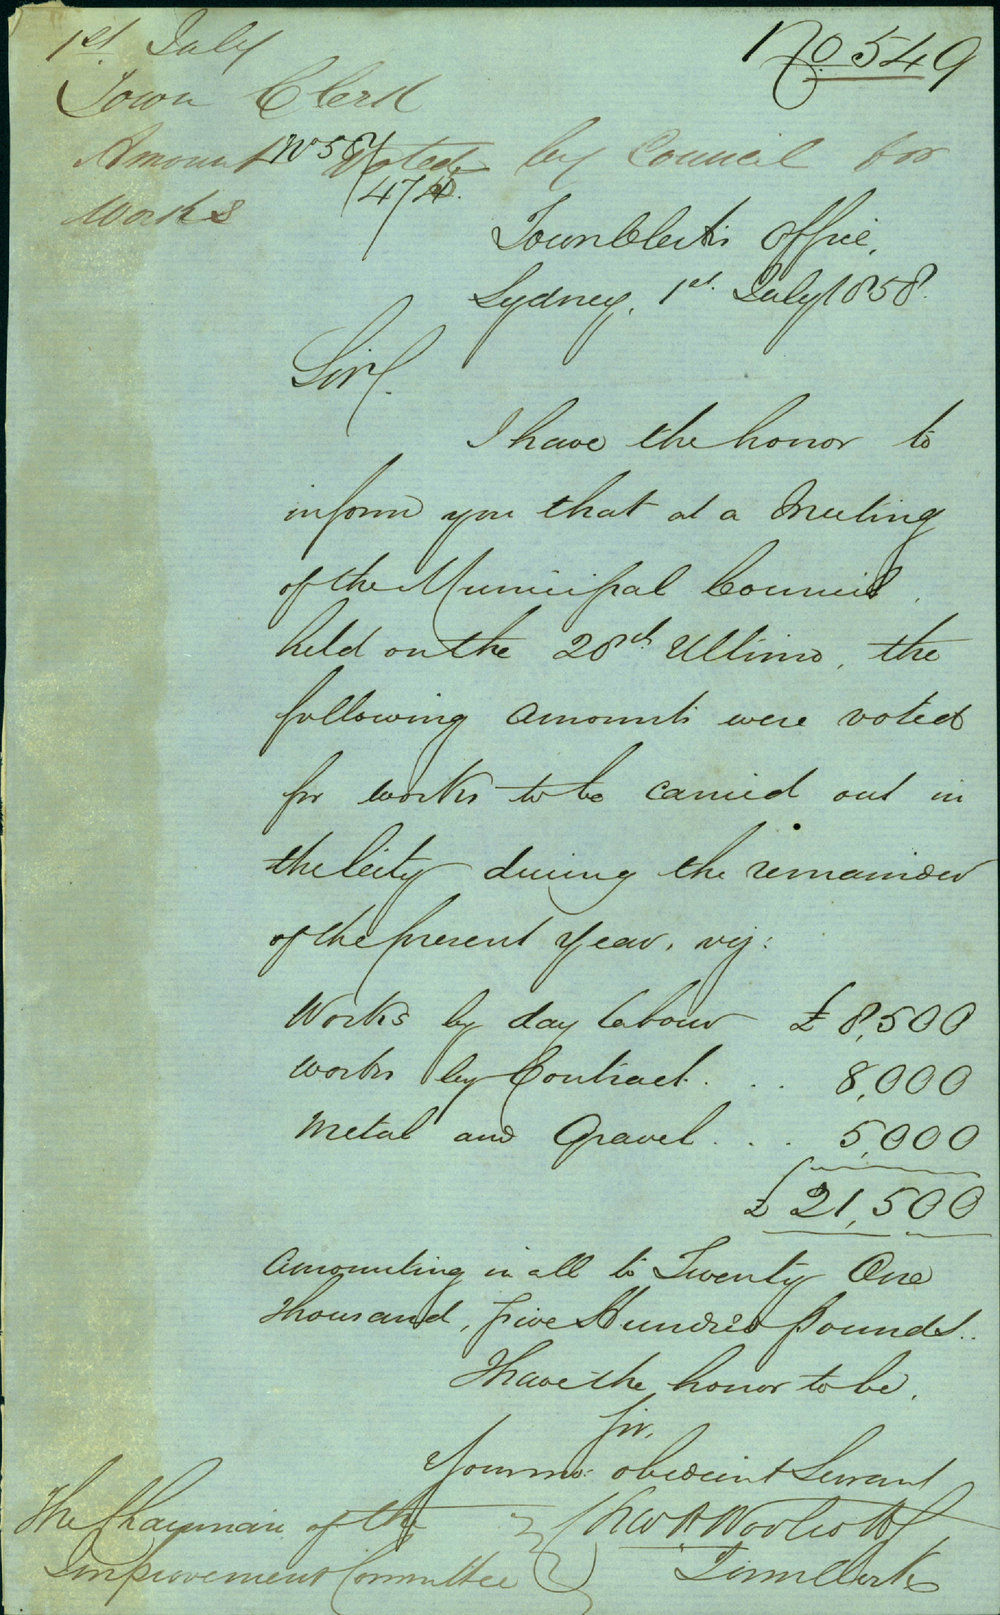 1st July
No 549
Town Clerk
Amount Voted by Council for
No 58/
474.
Works
Town Clerk's Office,
Sydney, 1st July 1858.
Sir,
I have the honor to
inform you that at a Meeting
of the Municipal Council
held on the 28th Ultimo, the
following amounts were voted
for works to be carried out in
the City during the remainder
of the present Year, viz:
Works by day labour £8,500
Works by Contract . . . 8,000
Metal and Gravel . . . 5,000
£21,500
Amounting in all to Twenty One
Thousand, five Hundred pounds..
I have the honor to be,
Sir,
Your mo: obedient Servant
Chas H Woolcott
Town Clerk
The Chairman of the
Improvement Committee